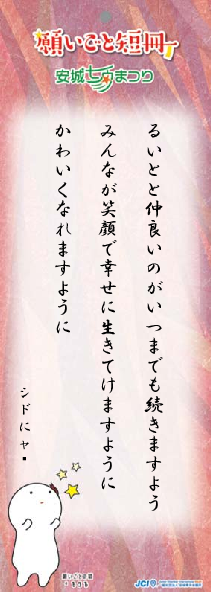 願いごと短冊
安城七夕まつり
るいとと仲良いのがいつまでも続きますよう
みんなが笑顔で幸せに生きてけますように
かわいくなれますように
シドにャ▪
願いごと短冊
JCI